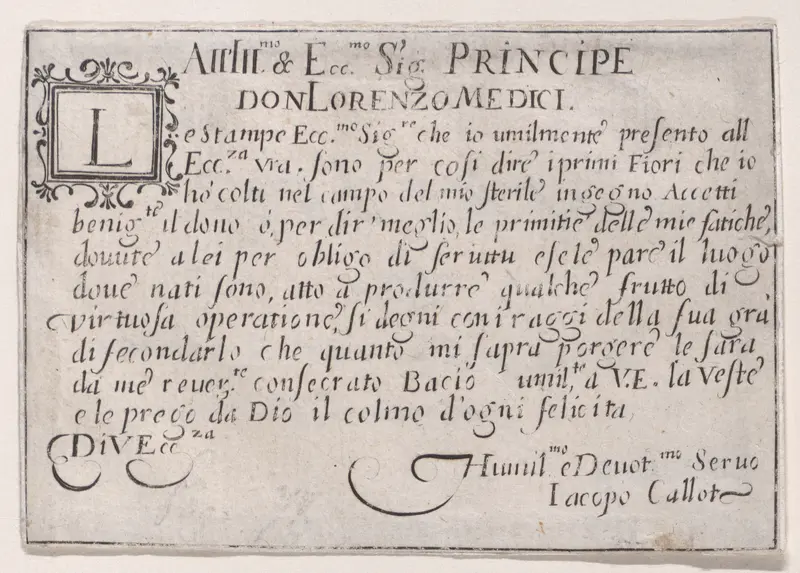 All'Ill.mo & Ecc.mo Sig.r PRINCIPE
DON LORENZO MEDICI.
Le Stampe Ecc.mo Sig.re che io umilmente presento all
Ecc.za vra. sono per cosi dire i primi Fiori che io
hò colti nel campo del mio sterile ingegno Accetti
benig.te il dono ò, per dir' meglio, le primitie delle mie fatiche,
douute a lei per obligo di seruitu e se le pare il luogo
doue nati sono, atto à produrre qualche frutto di
virtuosa operatione, si degni con i raggi della sua gra
di secondarlo che quanto mi sapra porgere le sara
da me reuer.te consecrato Bacio umil.te a V.E. la veste
e le prego da Dio il colmo d'ogni felicita,
Di V Ecc.za
Humil.mo e Deuot.mo Seruo
Iacopo Callot